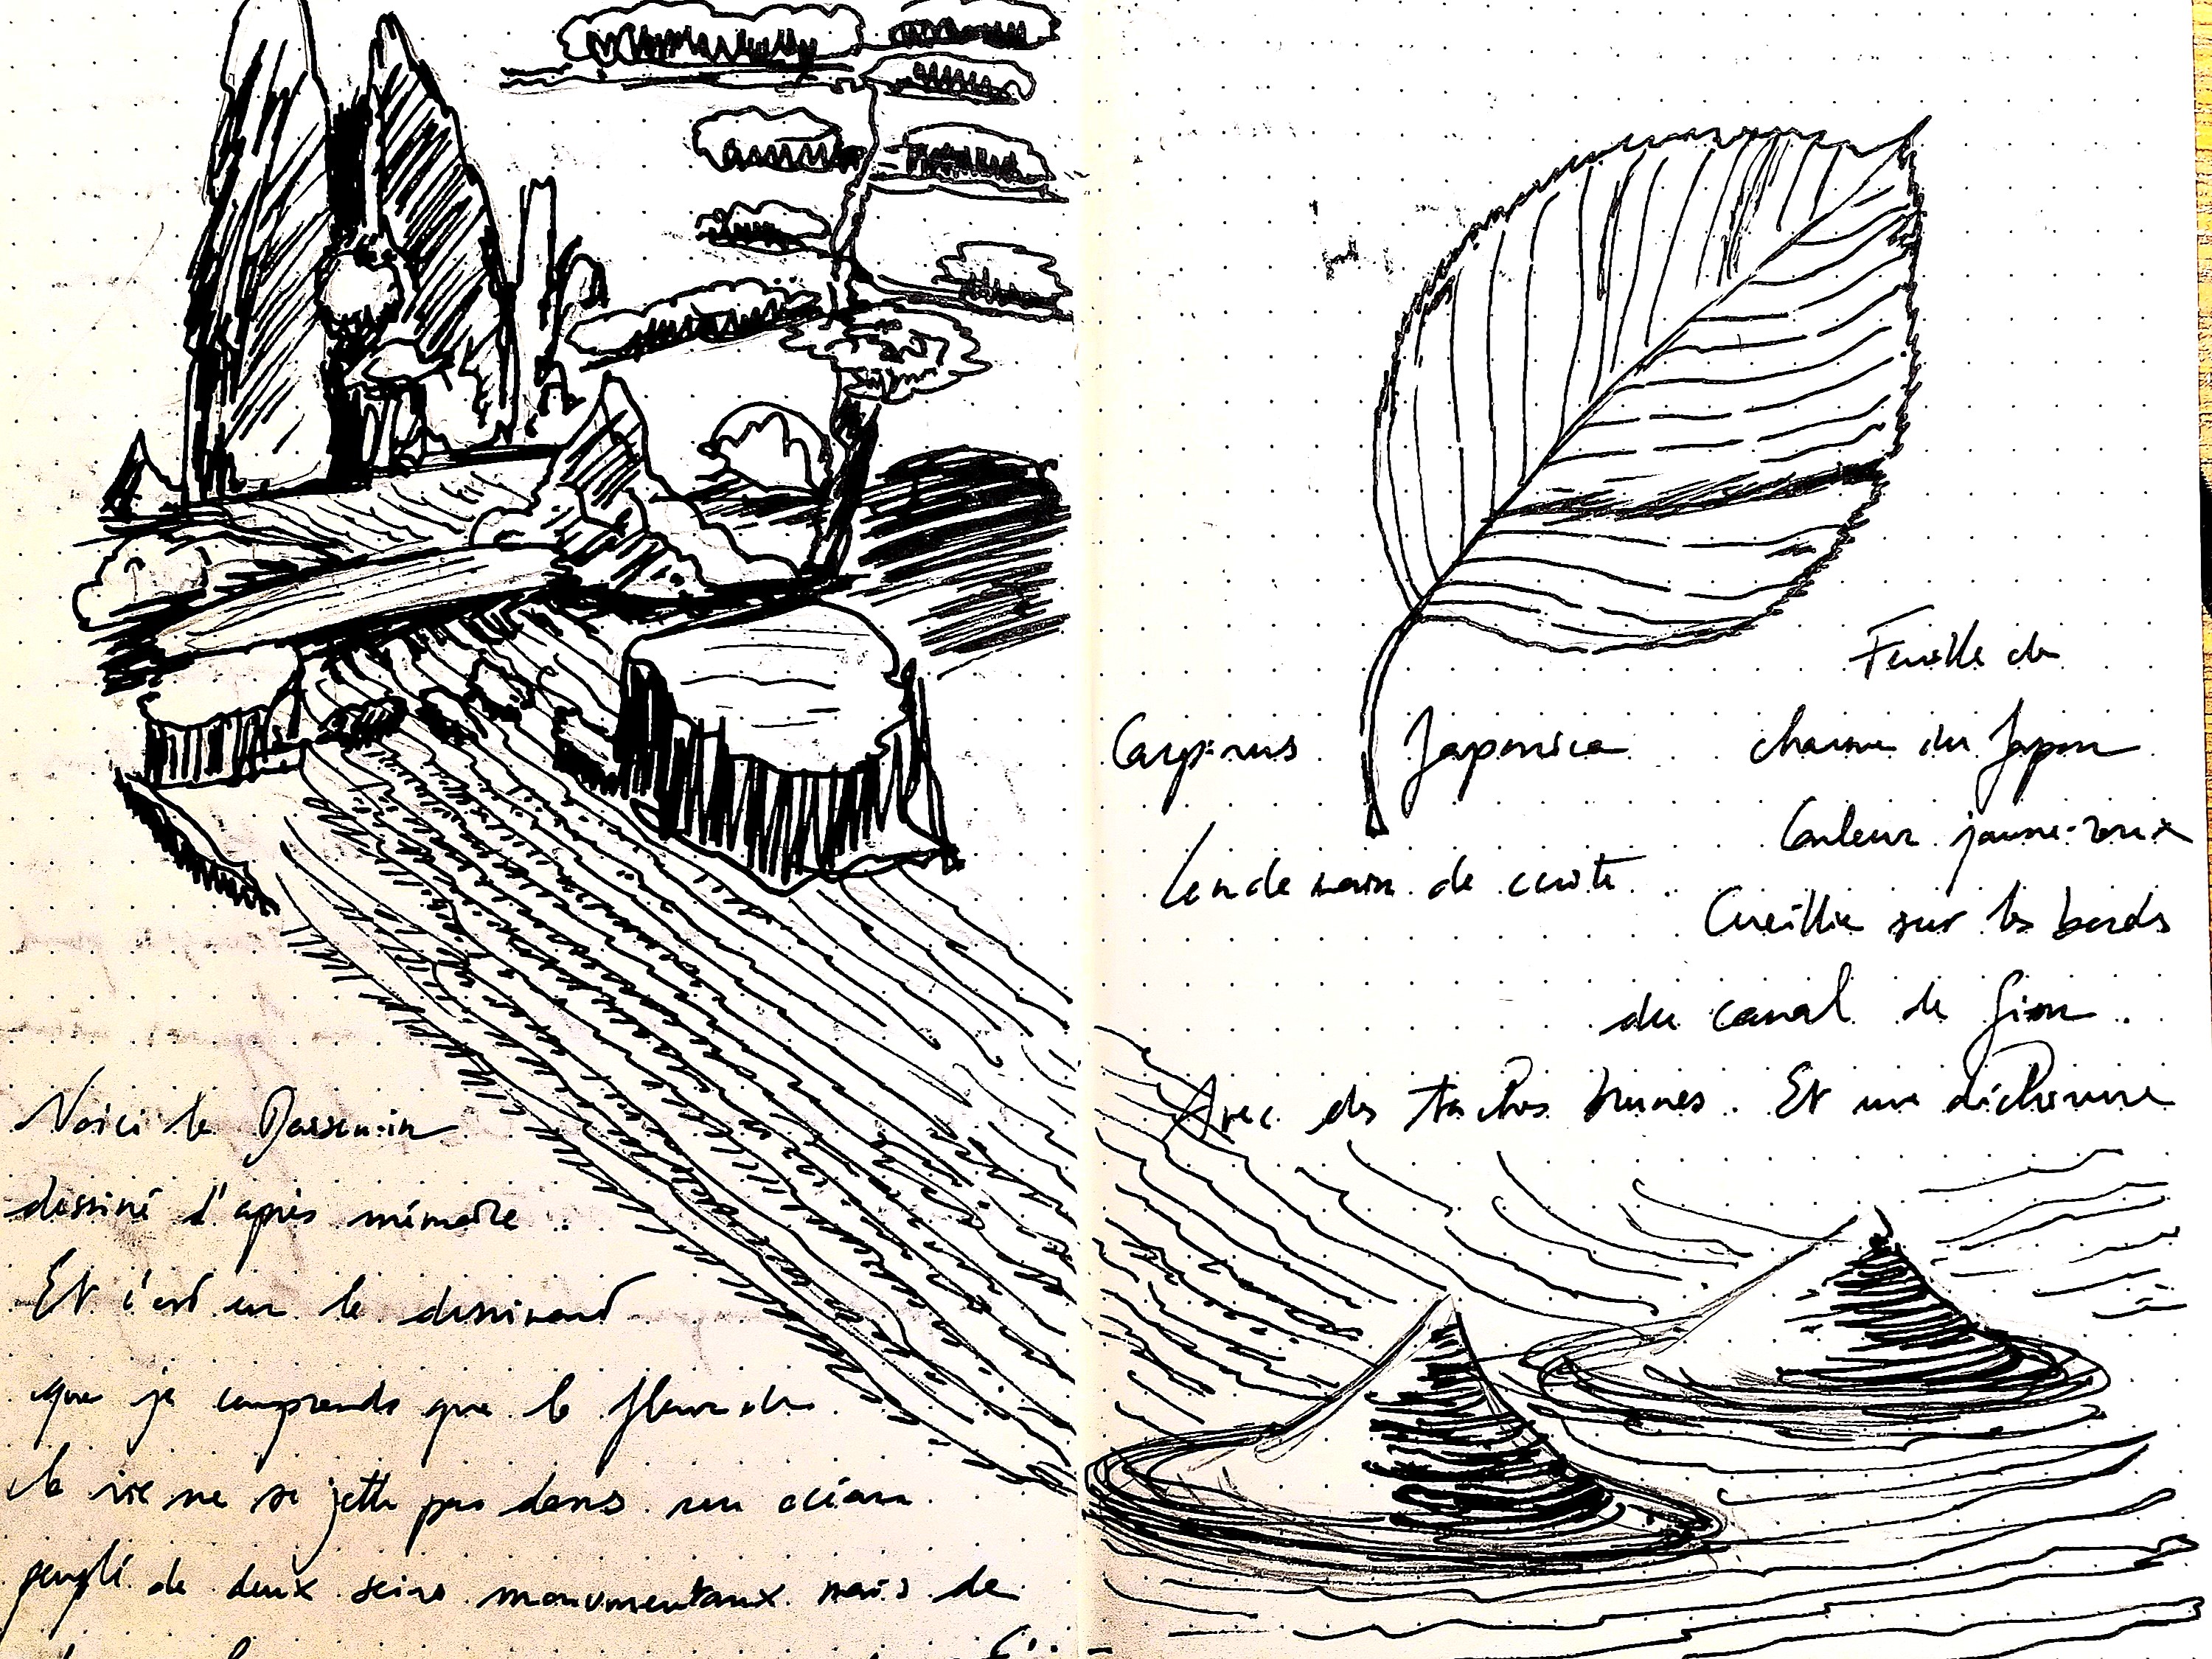 Voici le Dassen-in
dessiné d'après mémoire.
Et c'est en le dessinant
que je comprends que le fleuve de
la vie ne se jette pas dans un océan
peuplé de deux seins monumentaux mais de
Feuille de
Carpinus Japonica charme du Japon
Couleur jaune-roux
Lendemain de cuite
Cueillie sur les bords
du canal de Gion.
Avec des taches brunes. Et une déchirure